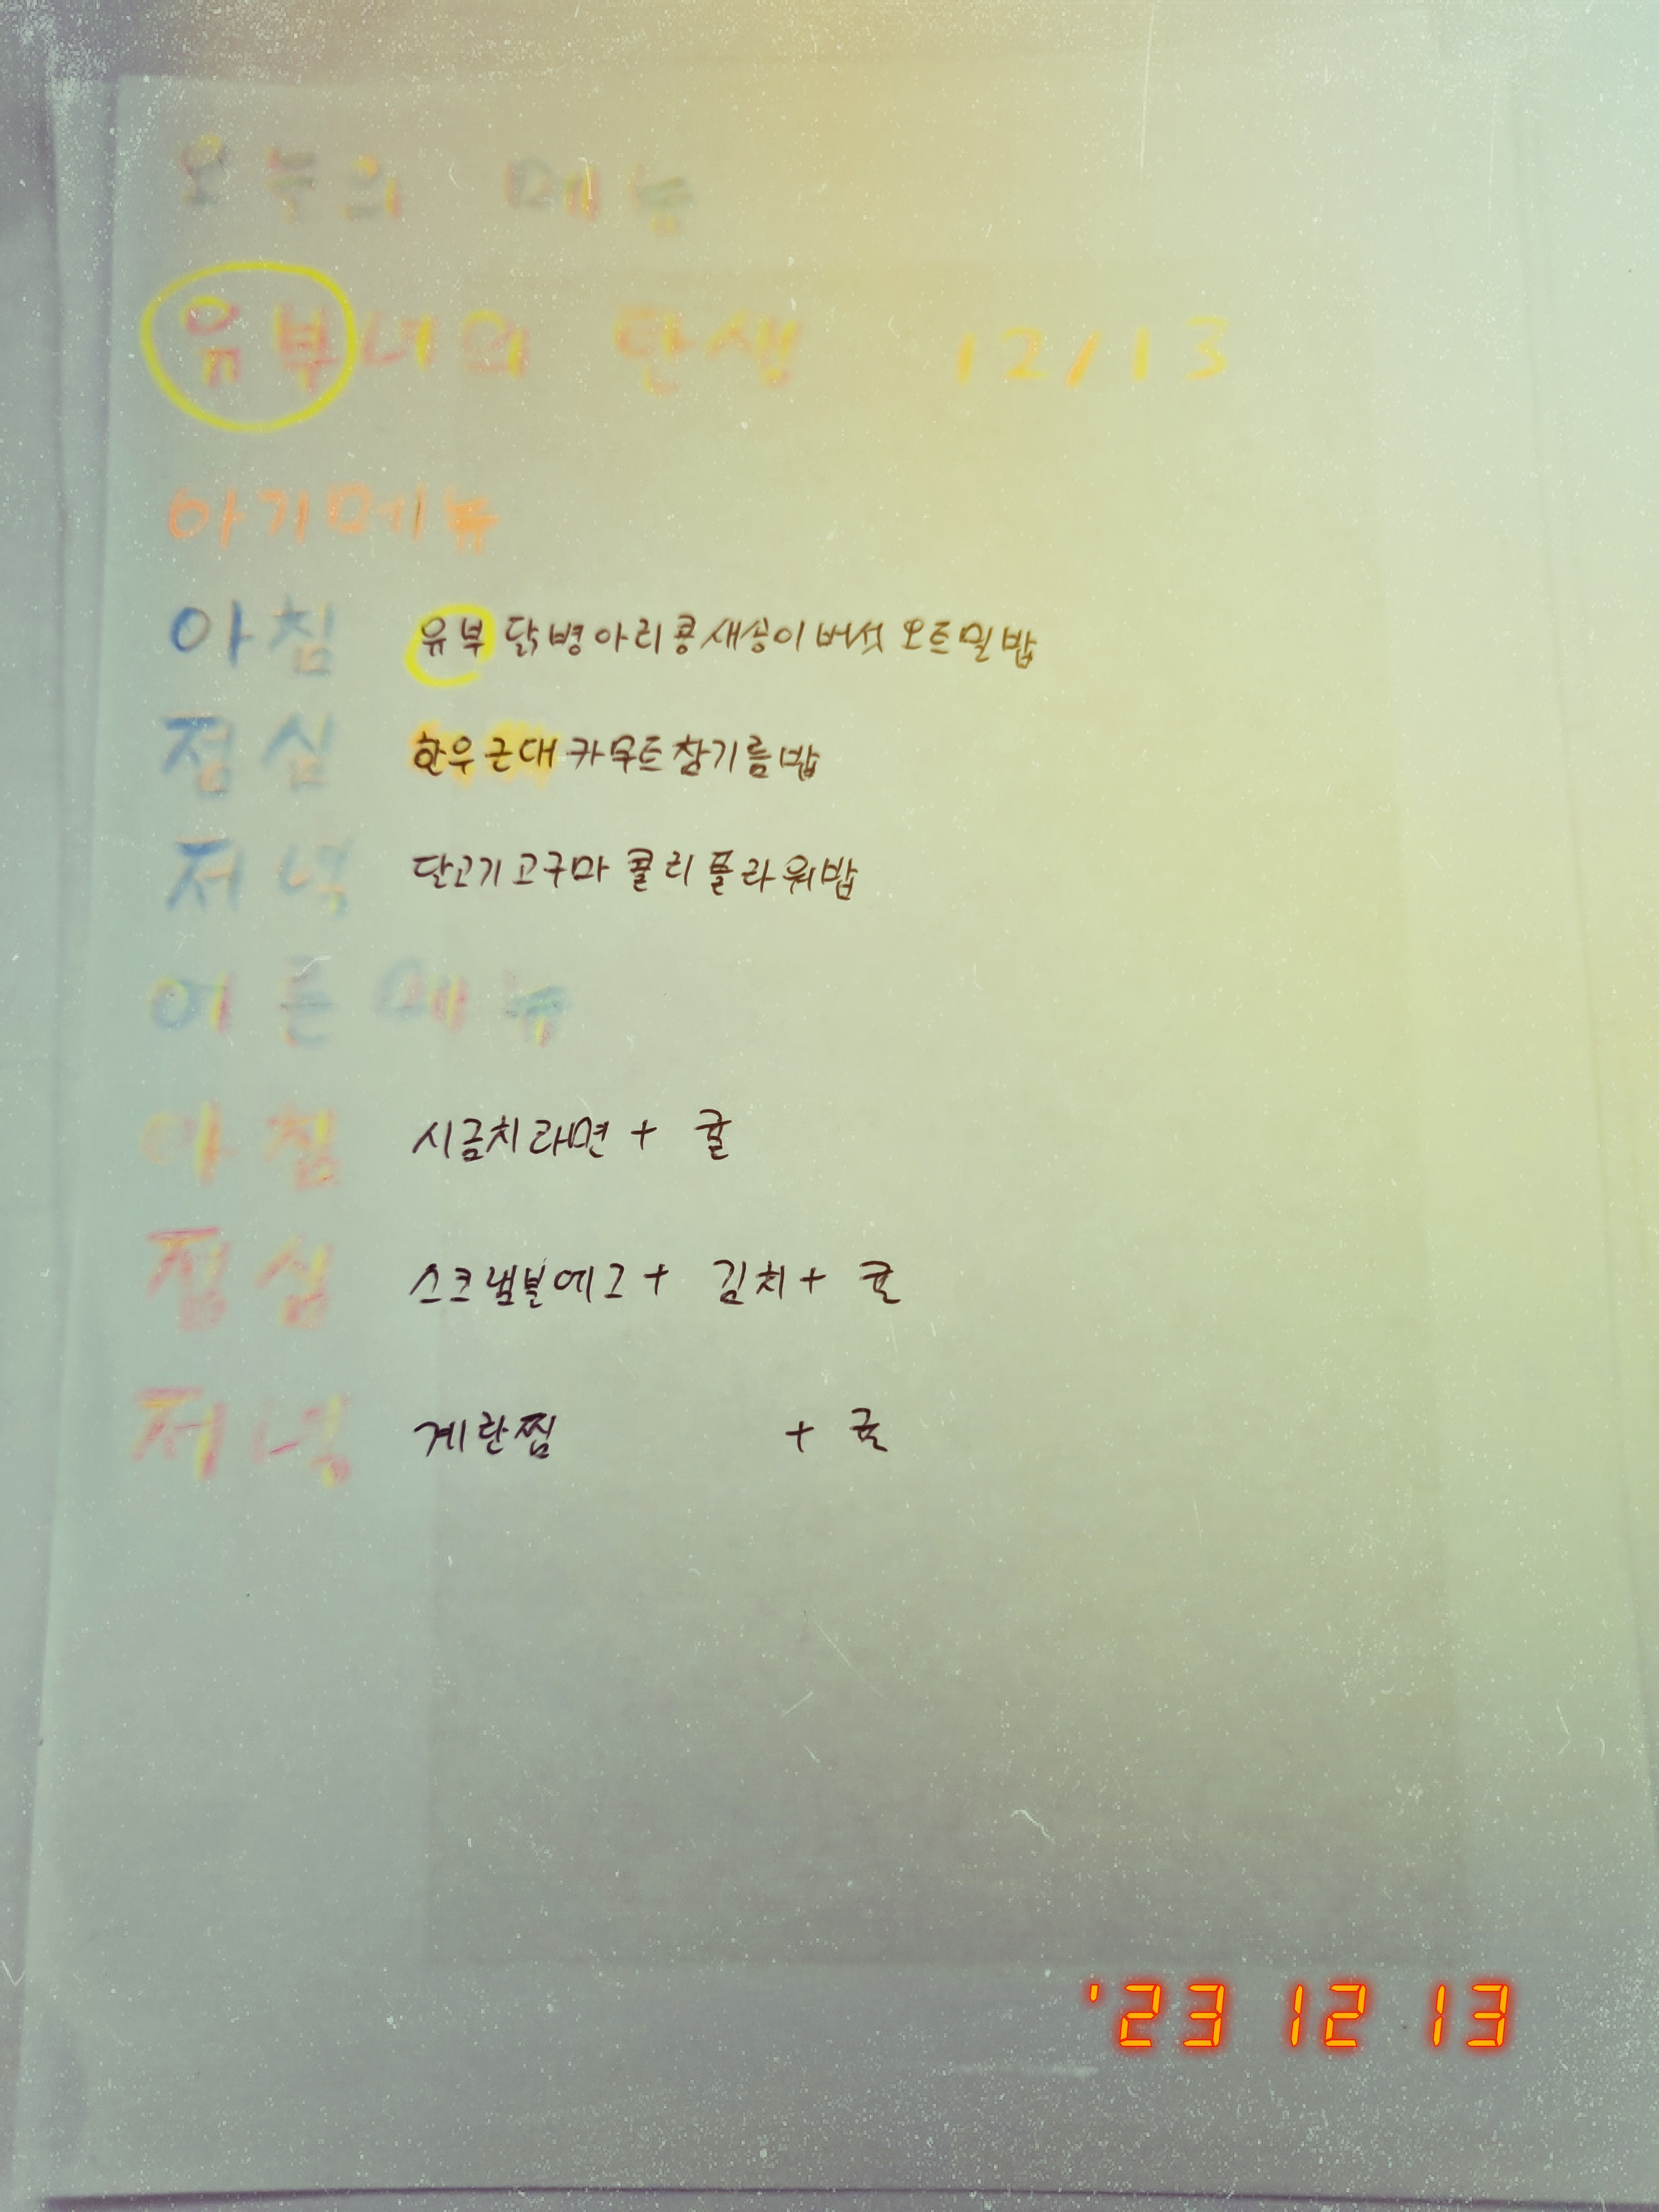 오늘의 메뉴
유부녀의 탄생 12/13
아기메뉴
아침 유부 닭병아리콩새송이버섯 오트밀밥
점심 한우근대카무트참기름밥
저녁 닭고기고구마 콜리플라워밥
어른메뉴
아침 시금치라면 + 귤
점심 스크램블에그 + 김치 + 귤
저녁 계란찜 + 귤
'23 12 13